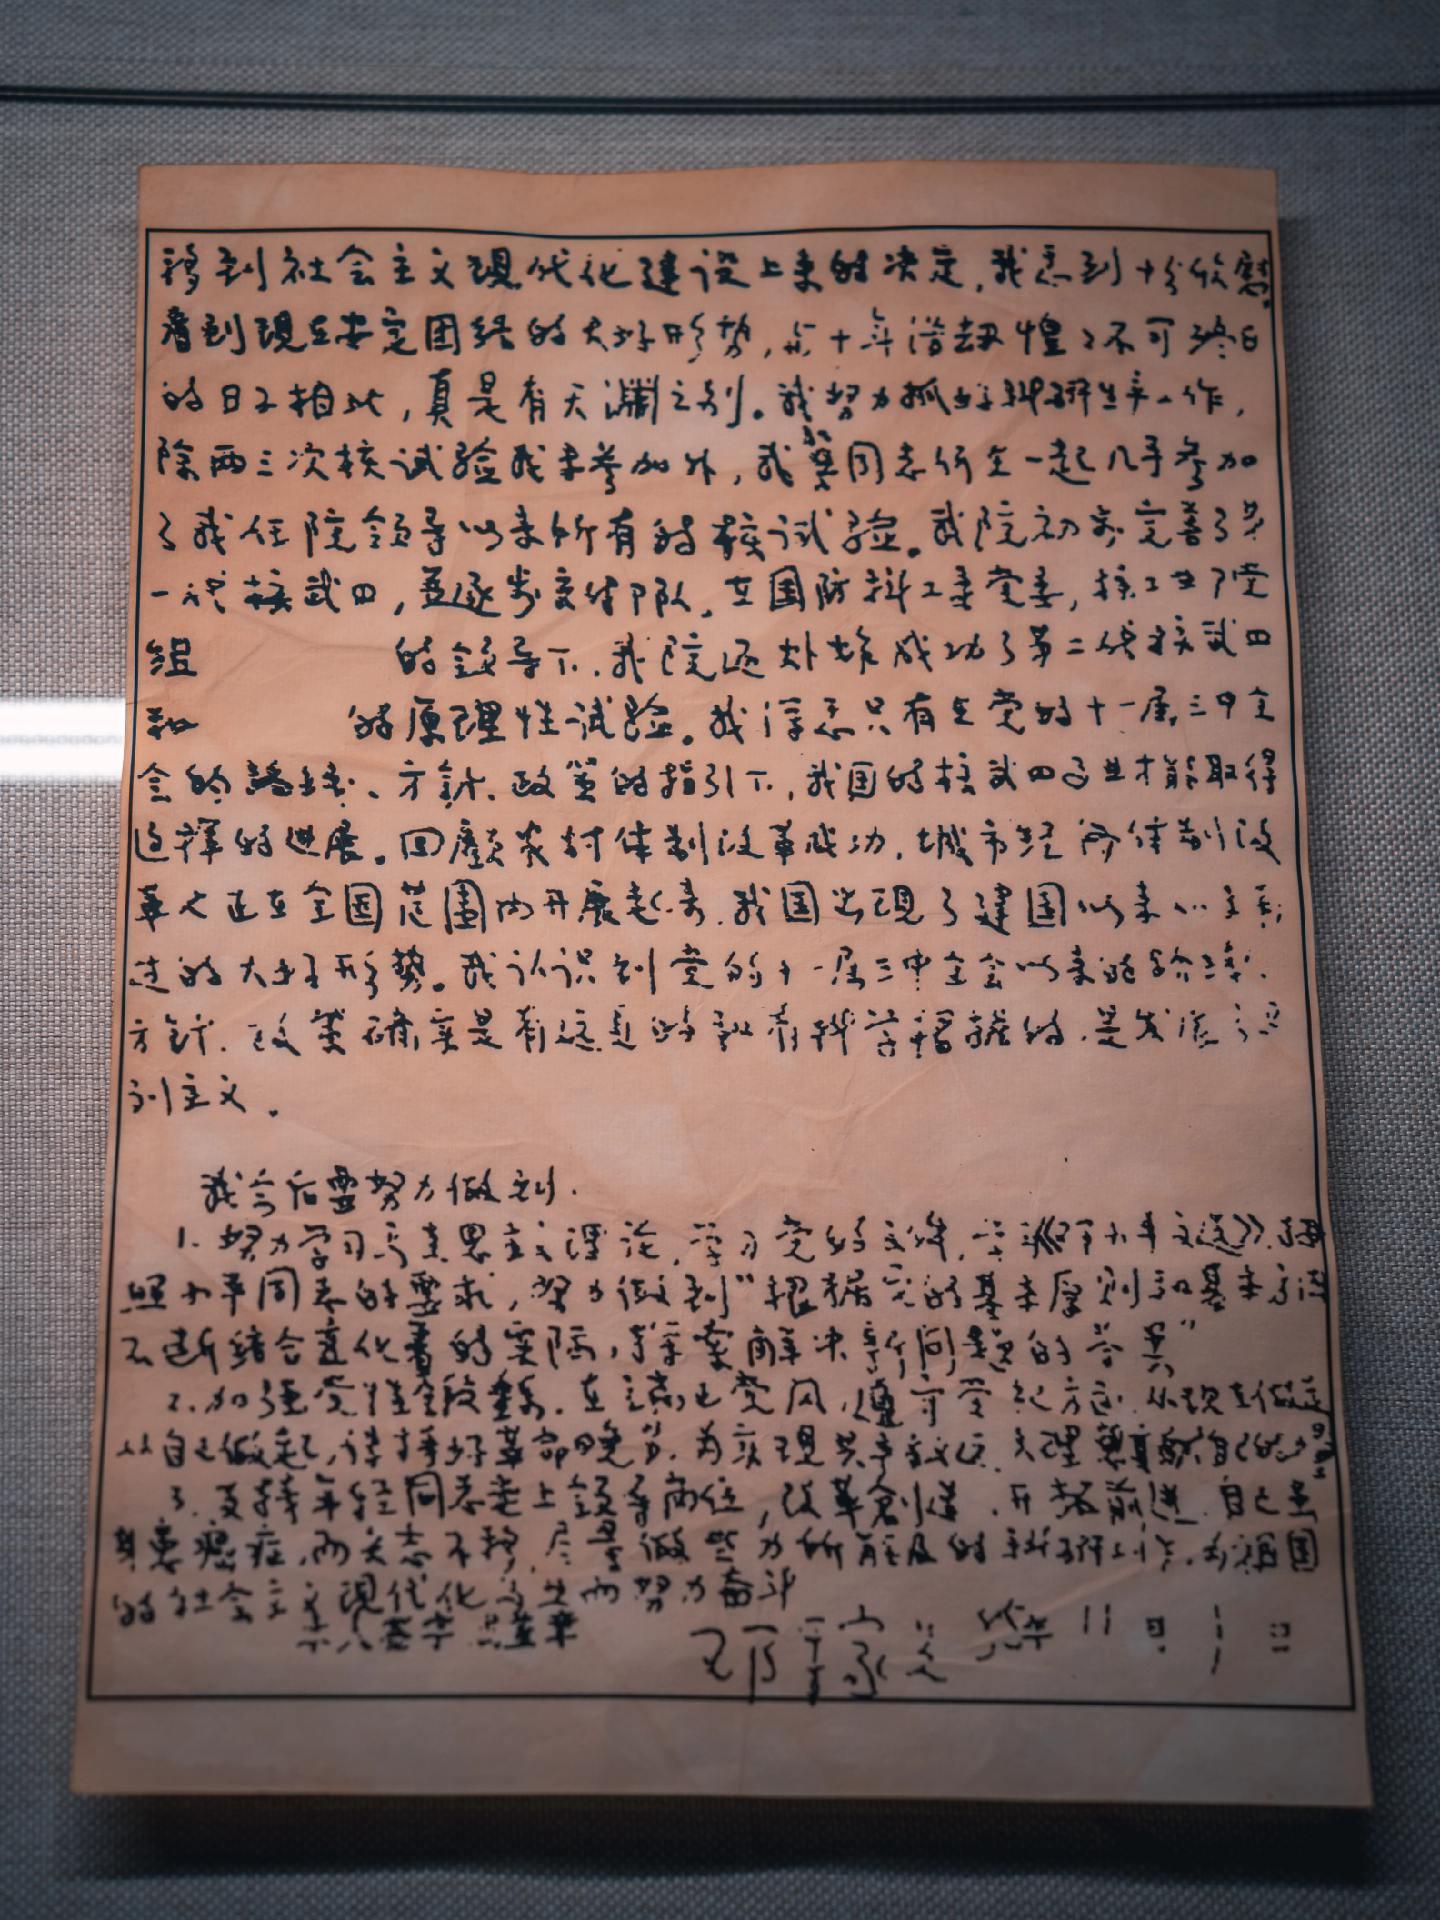 移到社会主义现代化建设上来的决定，我感到十分欣慰。
看到现在安定团结的大好形势，与十年浩劫惶惶不可终日
的日子相比，真是有天渊之别。我努力抓好科研生产工作，
除两三次核试验我未参加外，我和其同志们在一起几乎参加
了我任院领导以来所有的核试验。我院初步完善了第
一代核武四，并逐步交付部队。在国防科工委党委，核工业部党
组 的领导下，我院还突成功了第二代核武四
和 的原理性试验。我深感只有在党的十一届三中全
会的路线、方针、政策的指引下，我国的核武四事业才能取得
这样的进展。回顾农村体制改革成功，城市经济体制改
革也正在全国范围内开展起来，我国出现了建国以来
过的大好形势。我认识到党的十一届三中全会以来的路线、
方针、政策确实是有远见的和有科学根据的，是发展
列主义。
我今后要努力做到：
1. 努力学习马克思主义理论，学习党的文件，学习《邓小平文选》，按
照小平同志的要求，努力做到“根据它的基本原则和基本方法
不断结合变化着的实际，探索解决新问题的答案”
2. 加强党性锻炼，在端正党风，遵守党纪方面，从现在做起
从自己做起，保持好革命晚节，为实现共产主义 理想贡献自己的力量
3. 支持年轻同志走上领导岗位，改革创造，开拓前进。自己虽
身患癌症，而矢志不移，尽量做些力所能及的科研工作，为祖国
的社会主义现代化事业而努力奋斗
邓稼先